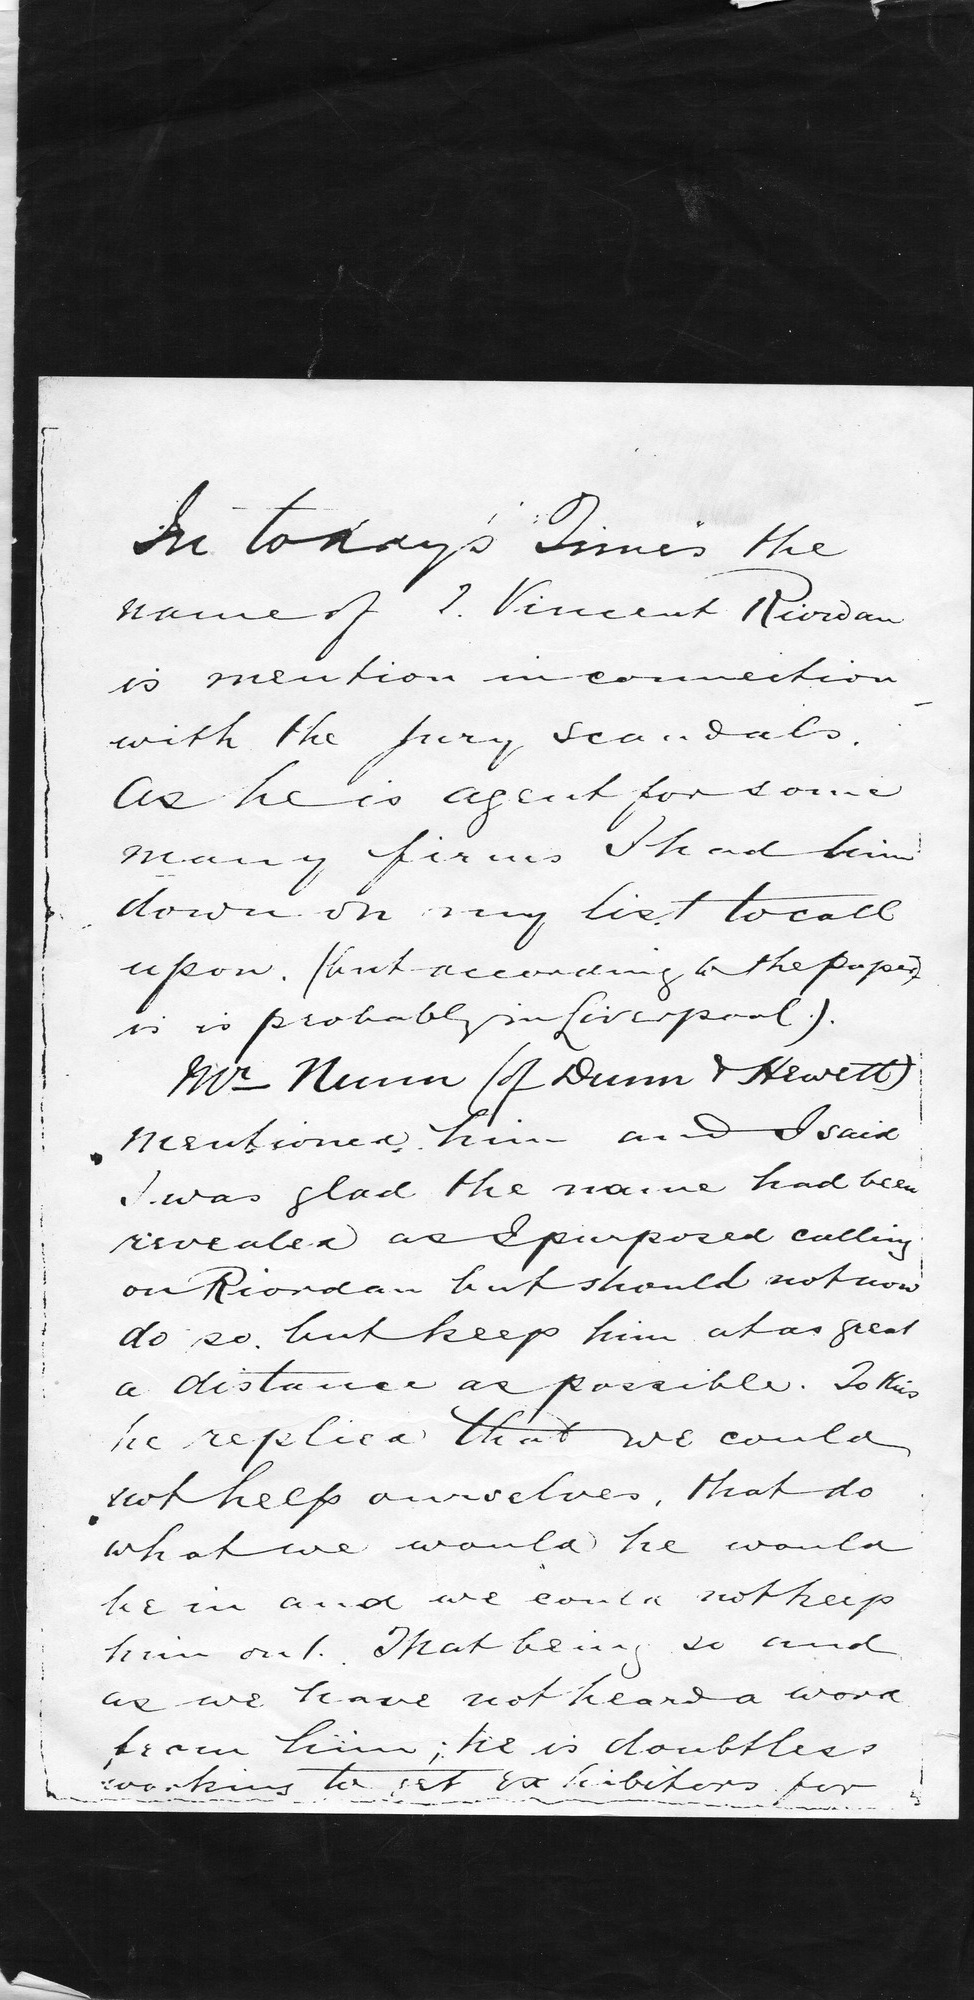 In today's "Times" the
name of J. Vincent Riordan
is mention in connection
with the jury scandals.
As he is agent for some
many firms I had him
down on my list to call
upon. (but according to the paper
is is probably in Liverpool).
Mr Nunn (of Dunn & Hewett)
mentioned him and I said
I was glad the name had been
revealed as I purposed calling
on Riordan but should not now
do so. but keep him at as great
a distance as possible. To this
he replied that we could
not help ourselves, that do
what we would he would
be in and we could not keep
him out. That being so and
as we have not heard a word
from him; he is doubtless
working to get exhibitors for